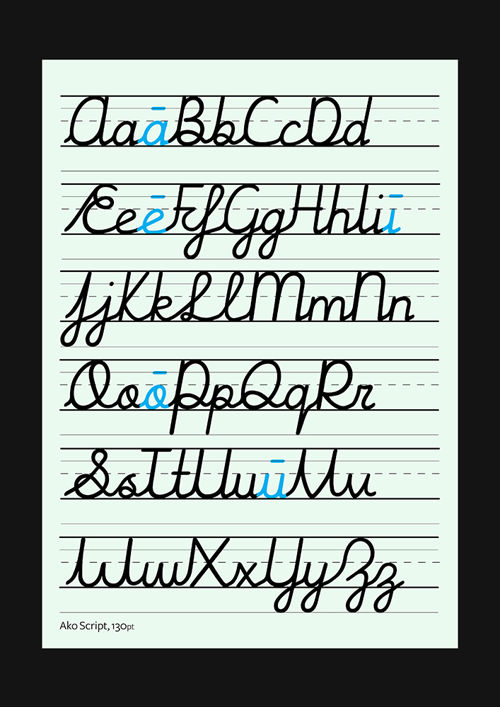 AaāBbCcDd
EeēFfGgHhIiī
JjKkLlMmNn
OoōPpQqRr
SsTtUuūVv
WwXxYyZz
Ako Script, 130pt